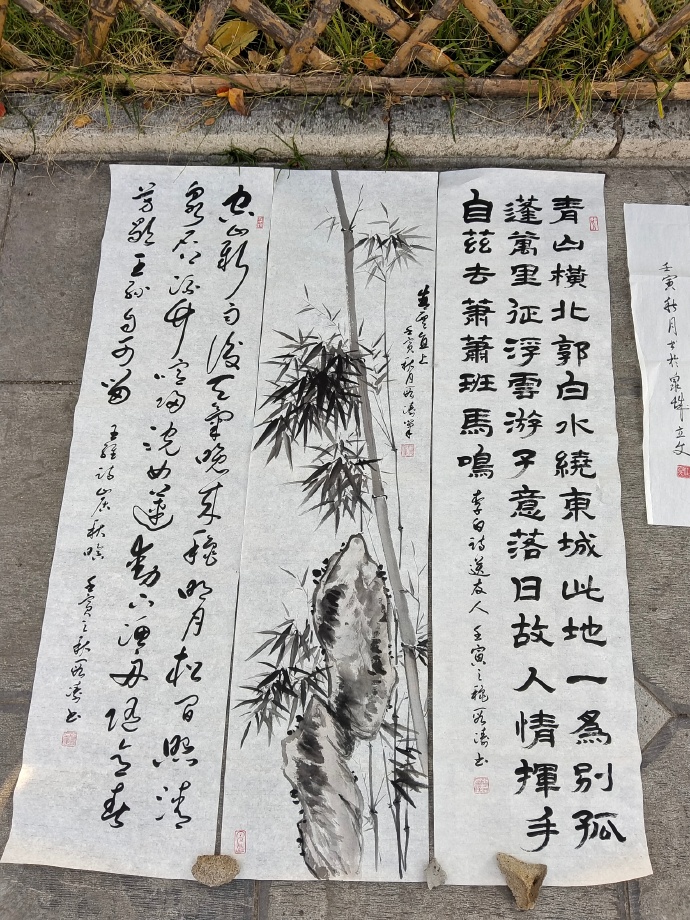 青山橫北郭白水繞東城此地一爲別孤
蓬萬里征浮雲游子意落日故人情揮手
自茲去蕭蕭班馬鳴
李白詩送友人 壬寅之秋雨濤书
雲直上
壬寅秋月雨濤筆
空山新雨後天氣晚來秋明月松間照清
泉石上流竹喧歸浣女蓮動下漁舟隨意春
芳歇王孫自可留
王維詩山居秋暝 壬寅之秋雨濤书
壬寅秋月书於泉城立文